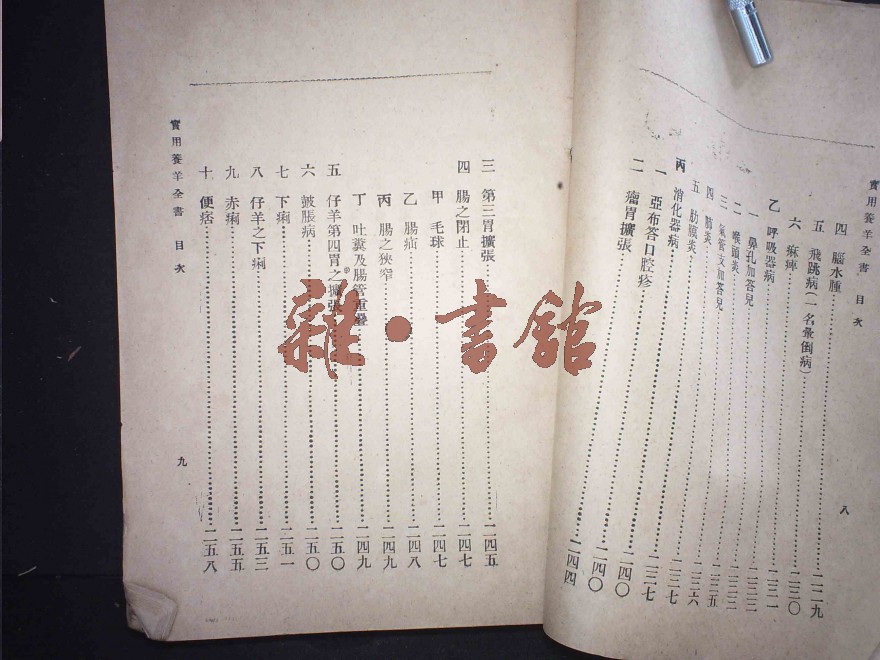 實用養羊全書 目次
四 腦水腫 二二九
五 飛跳病(一名暈倒病)
六 麻痺 二三〇
乙 呼吸器病 二三一
一 鼻孔加答兒 二三三
二 喉頭炎 二三三
三 氣管支加答兒 二三五
四 肺炎 二三六
五 肋膜炎
丙 消化器病 二三七
一 亞布答口腔疹 二三七
二 瘤胃擴張 二四〇
二四〇
二四四
八
三 第三胃擴張 二四五
四 腸之閉止 二四七
甲 毛球 二四七
乙 腸疝 二四八
丙 腸之狹窄 二四九
丁 吐糞及腸管重疊 二四九
五 仔羊第四胃之擴張 二五〇
六 皷脹病 二五〇
七 下痢 二五一
八 仔羊之下痢 二五三
九 赤痢 二五五
十 便痞 二五八
實用養羊全書 目次
九
雜·書館